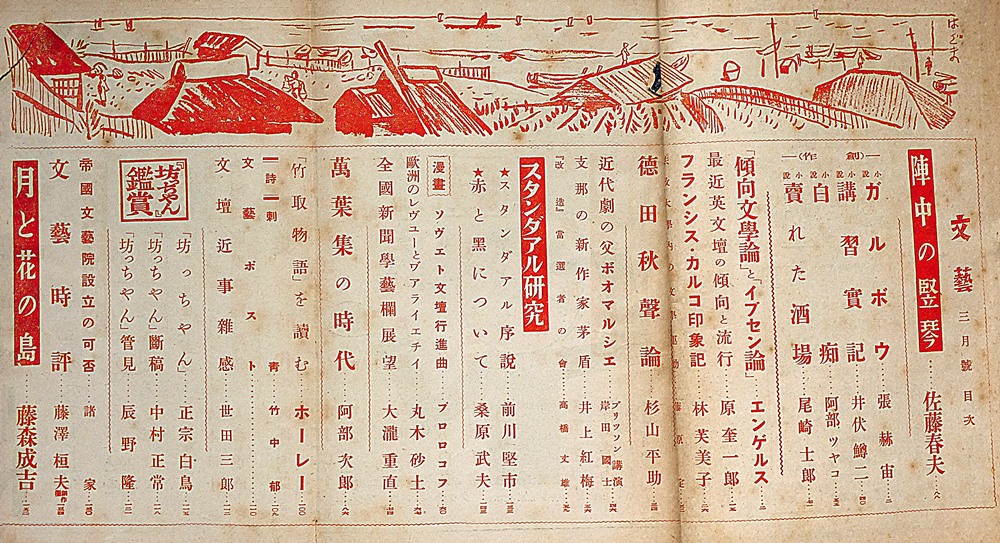 文藝 三月號 目次
陣中の竪琴……佐藤春夫
―(創作)―
小説 ガルボウ……張赫宙
小説 講習實記……井伏鱒二
小説 白痴……阿部ツヤコ
小説 賣れた酒場……尾崎士郎
「傾向文學論」と「イプセン論」……エンゲルス
最近英文壇の傾向と流行……原奎一郎
フランシス・カルコ印象記……林芙美子
德田秋聲論……杉山平助
近代劇の父ボオマルシェ……ブリツソン講演 岸田國士
支那の新作家茅盾……井上紅梅
『改造』當選者の會……高橋丈雄
スタンダアル研究
★スタンダアル序説……前川堅市
★赤と黑について……桑原武夫
漫畫 ソヴェト文壇行進曲……プロロコフ
歐洲のレヴユーとヴアライエテイ……丸木砂土
全國新聞學藝欄展望……大瀧重直
萬葉集の時代……阿部次郎
「竹取物語」を讀む……ホーレー
―詩― 刺靑……竹中郁
文藝ポスト
文壇近事雜感……世田三郎
『坊っちゃん』鑑賞
「坊っちやん」……正宗白鳥
「坊っちやん」斷稿……中村正常
「坊っちやん」管見……辰野隆
帝國文藝院設立の可否……諸家
文藝時評……藤澤桓夫
月と花の島……藤森成吉